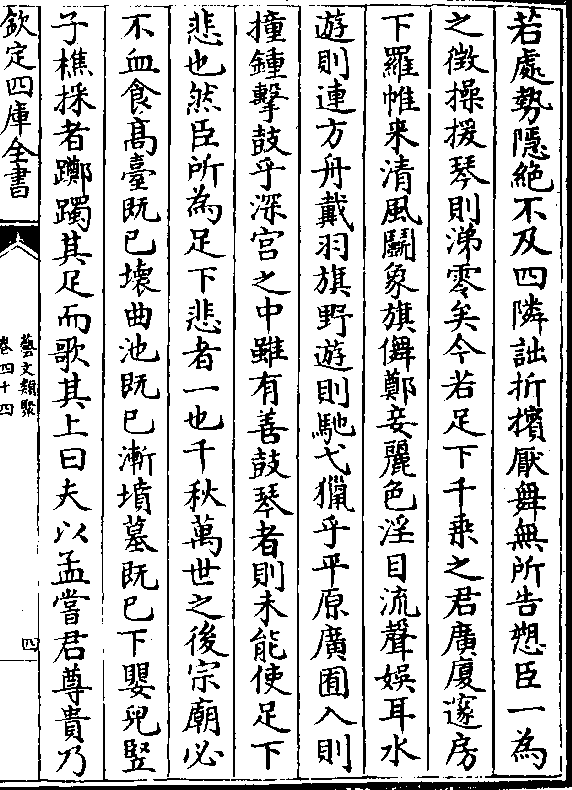 若處勢隱絶不及四隣詘折擯厭舞無所告愬臣一為
之徵操援琴則涕零矣今若足下千乗之君廣廈邃房
下羅帷来清風鬭象旗儛鄭妾麗色淫目流聲娯耳水
遊則連方舟戴羽旗野遊則馳弋獵乎平原廣囿入則
撞鍾擊鼓乎深宫之中雖有善鼓琴者則未能使足下
悲也然臣所為足下悲者一也千秋萬世之後宗廟必
不血食髙臺既已壊曲池既已漸墳墓既已下嬰兒竪
子樵採者躑躅其足而歌其上曰夫以孟嘗君尊貴乃
欽定四庫全書
藝文類聚
卷四十四
四